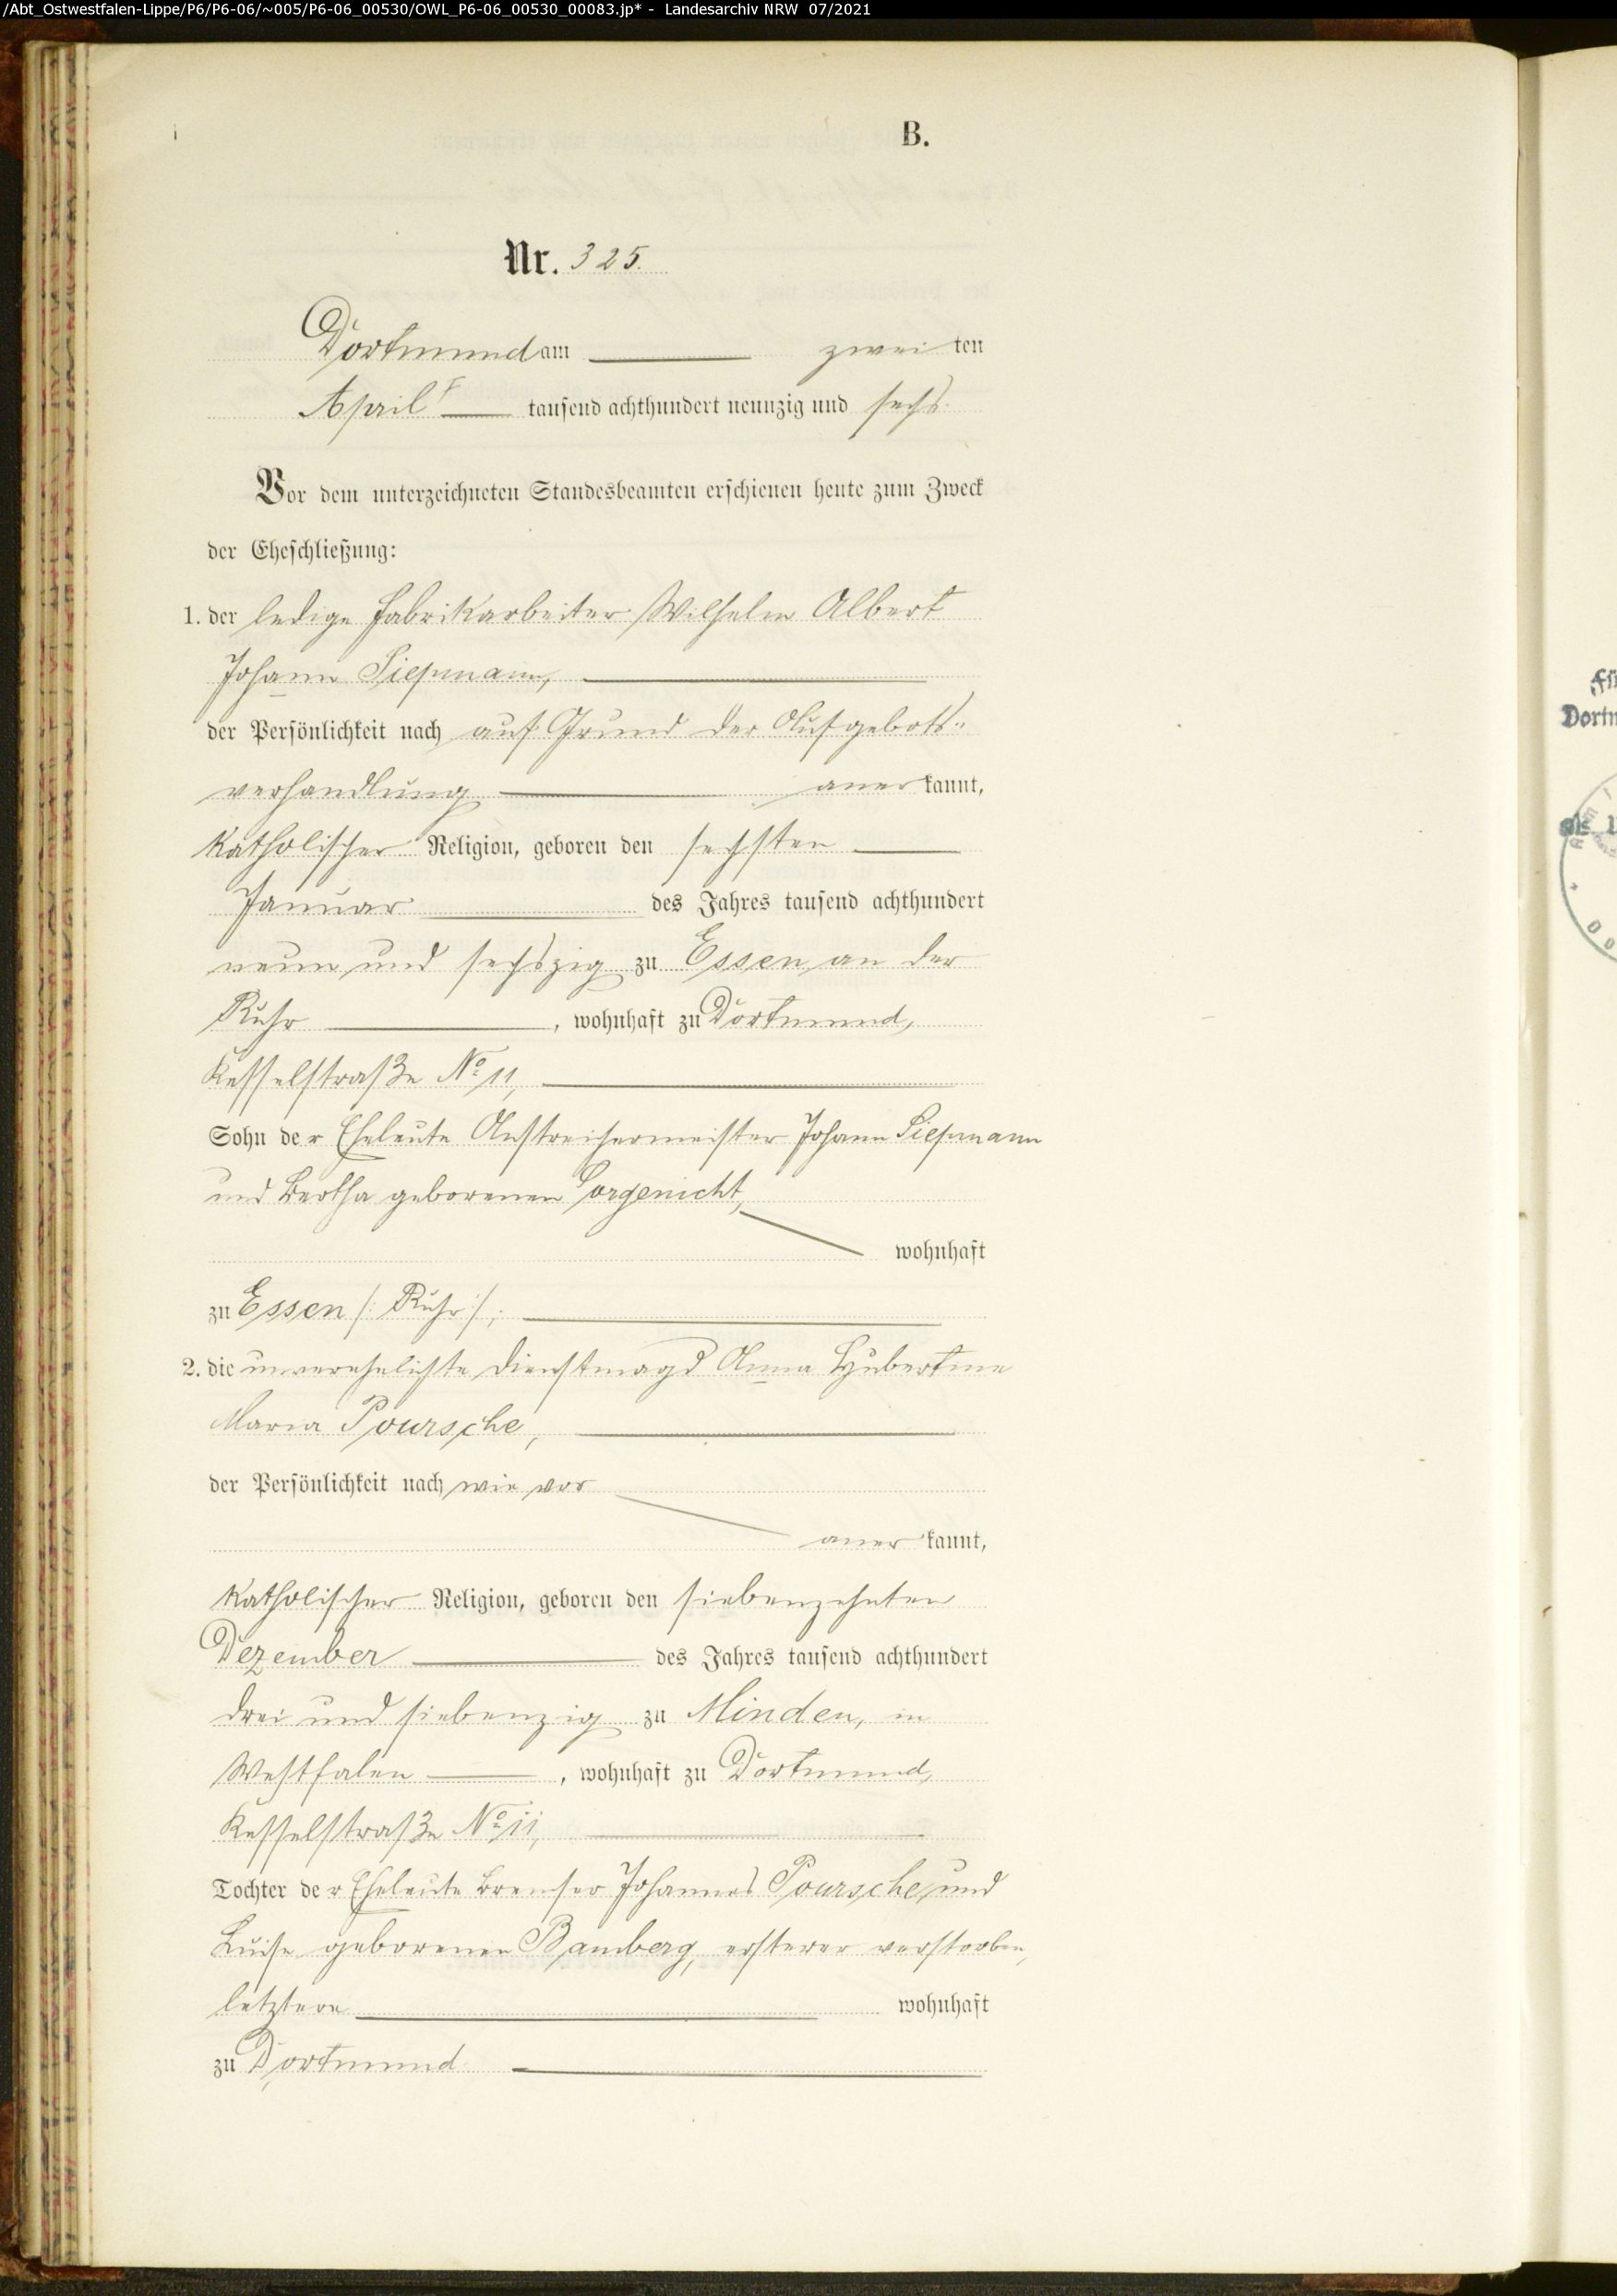 /Abt_Ostwestfalen-Lippe/P6/P6-06/~005/P6-06_00530/OWL_P6-06_00530_00083.jp* - Landesarchiv NRW 07/2021
B.
Nr. 325.
Dortmund am zwei ten
April tausend achthundert neunzig und sechs
Vor dem unterzeichneten Standesbeamten erschienen heute zum Zweck
der Eheschließung:
1. der ledige Fabrikarbeiter Wilhelm Albert
Johann Siepmann,
der Persönlichkeit nach auf Grund der Aufgebots-
verhandlung aner kannt,
katholischer Religion, geboren den sechsten
Januar des Jahres tausend achthundert
neun und sechszig zu Essen an der
Ruhr, wohnhaft zu Dortmund,
Kesselstraße No 11,
Sohn der Eheleute Anstreichermeister Johann Siepmann
und Bertha geborenen Sorgenicht,
wohnhaft
zu Essen /: Ruhr :/,
2. die unverehelichte Dienstmagd Anna Hubertine
Maria Poursche,
der Persönlichkeit nach wie vor
aner kannt,
katholischer Religion, geboren den siebenzehnten
Dezember des Jahres tausend achthundert
drei und siebenzig zu Minden, in
Westfalen, wohnhaft zu Dortmund,
Kesselstraße No 11,
Tochter der Eheleute Bremser Johannes Poursche und
Luise geborenen Bamberg, ersterer verstorben,
letztere wohnhaft
zu Dortmund